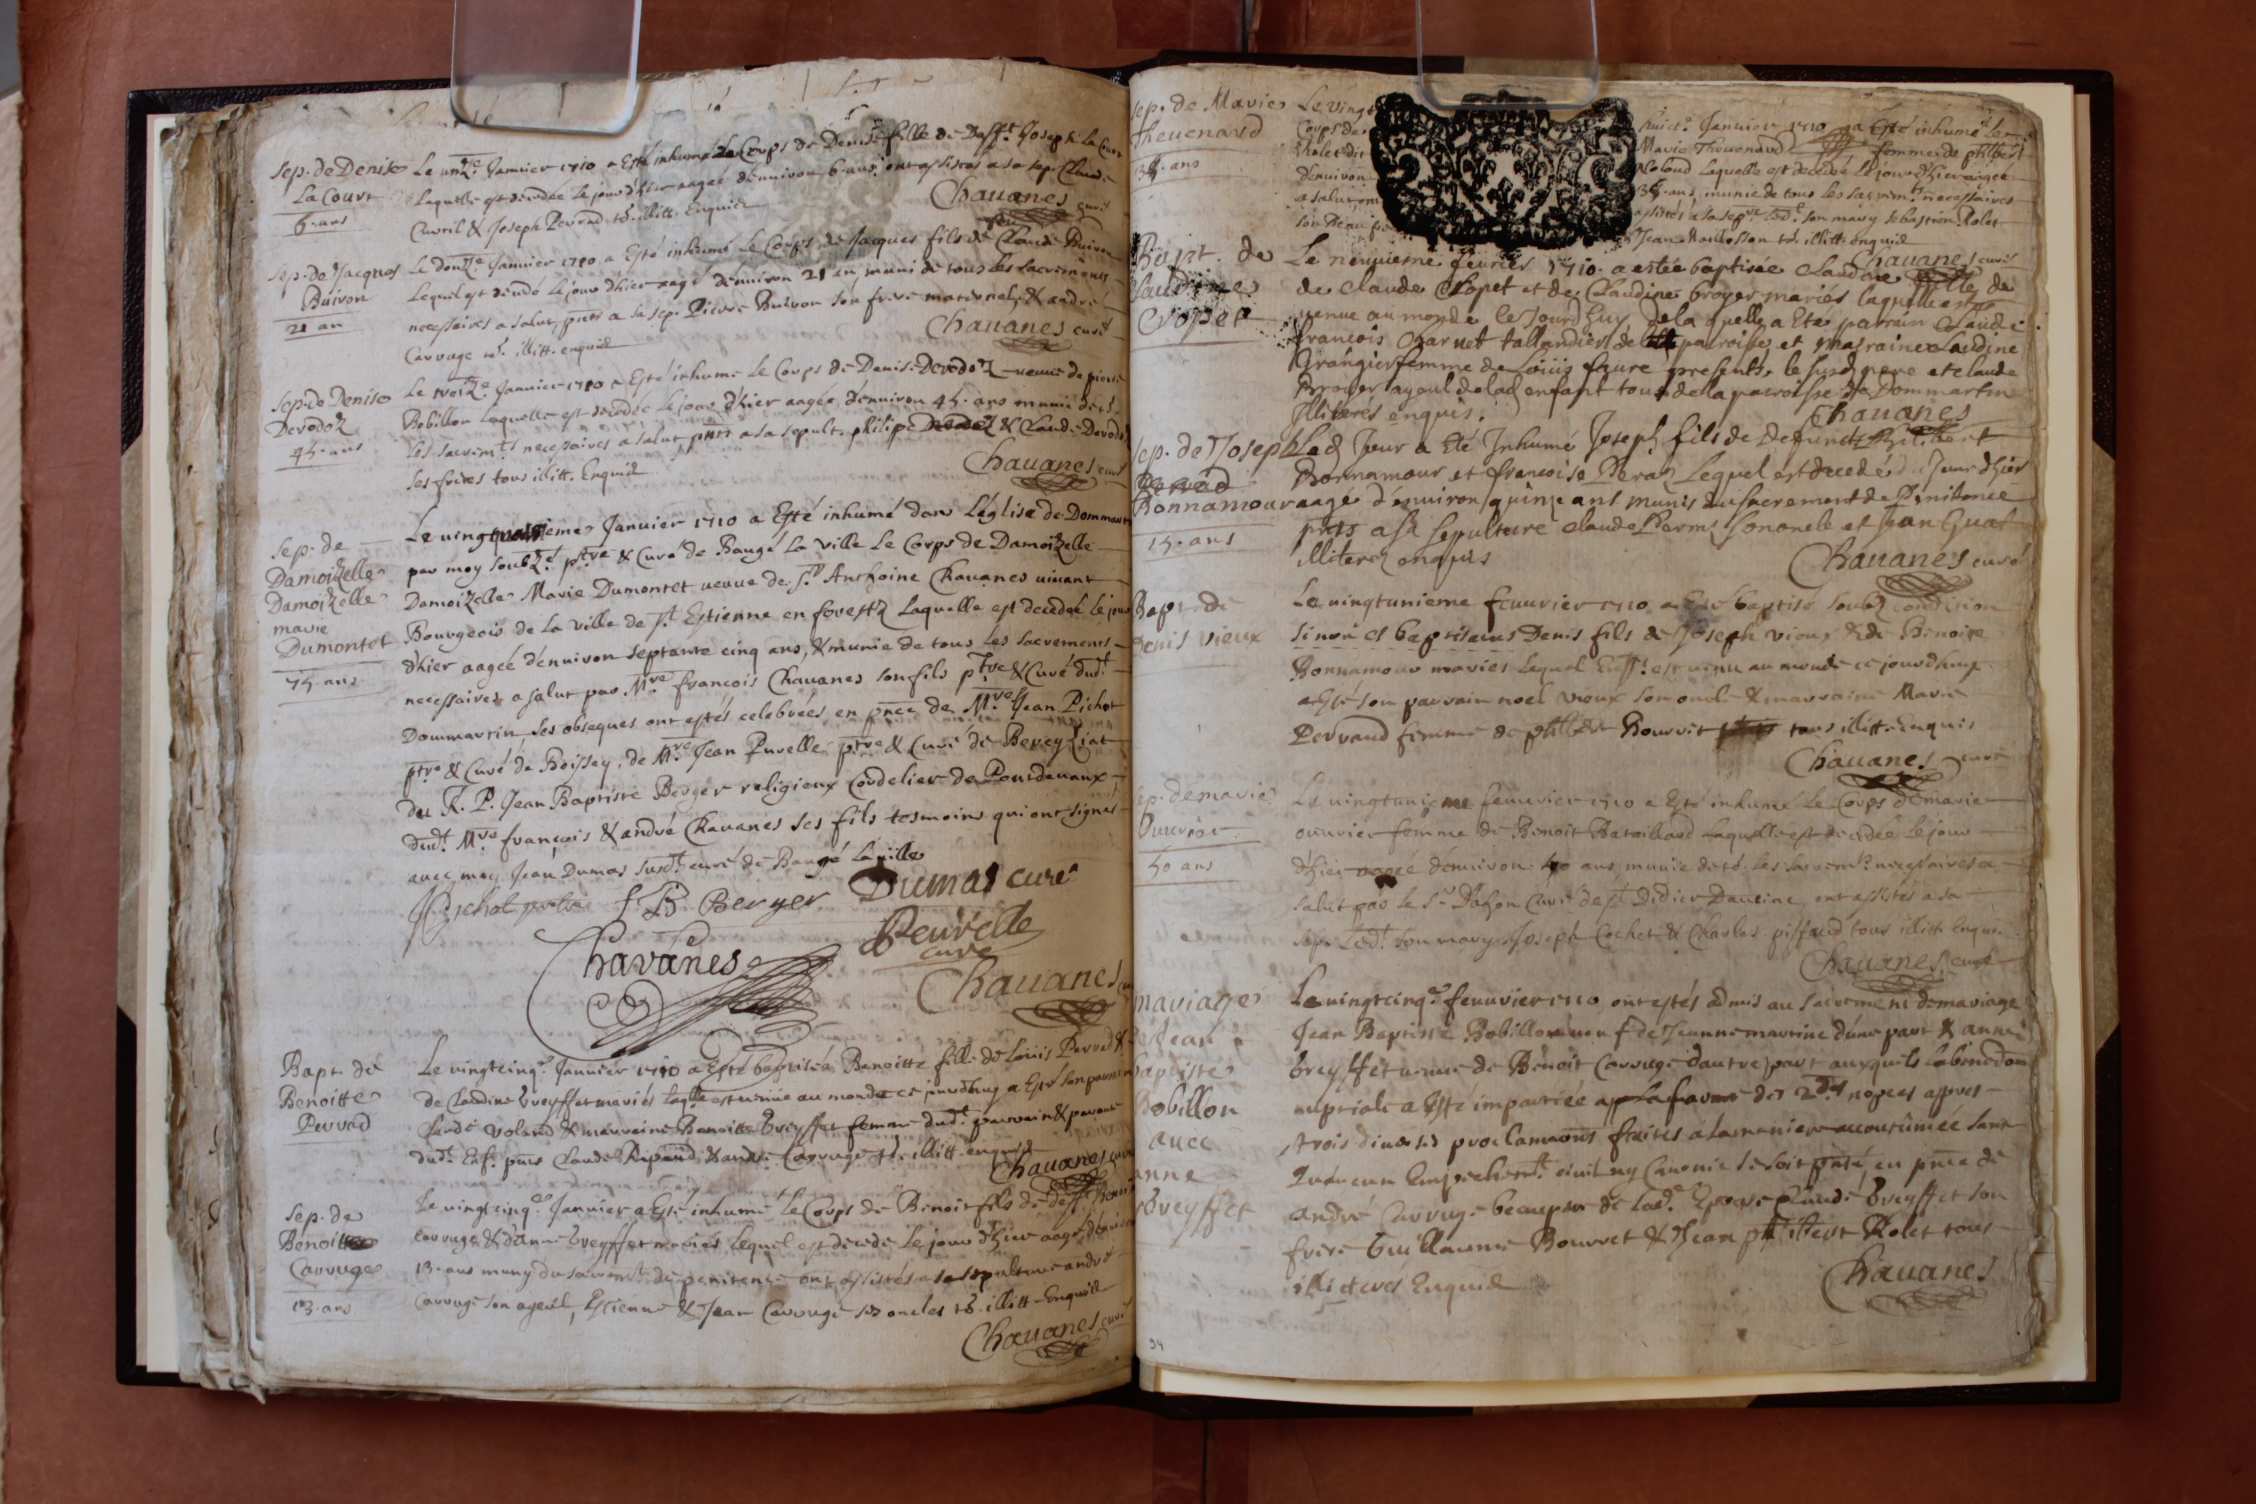 Sep. de Denise
La Court
6. ans
Le unz.e Januier 1710 a Esté inhumé Le Corps de Denise fille de Deff.t Joseph La Court
Laquelle est decedée le jour d'hier aagée d'enuiron 6. ans, ont assistés a sa sep. Claude
Cuvril & Joseph Perrad ts. illitt. Enquid
Chauanes curé
Sep. de Jacques
Buiron
21 an
Le douz.e Januier 1710 a Esté inhumé Le Corps de Jacques fils de Claude Buiron
Lequel est decedé le jour d'hier aagé d'enuiron 21 an, muni de tous les sacrements
necessaires a salut, pnts a sa sep. Pierre Buiron son frere maternel, & andré
Carruge ts. illitt. enquid
Chauanes curé
Sep. de Denise
Derodoz
45. ans
Le treiz.e Januier 1710 a Esté inhumé Le Corps de Denise Derodoz veuue de pierre
Bobillon Laquelle est decedée le jour d'hier aagée d'enuiron 45. ans munie de ts.
les sacrem.ts necessaires a salut pnts a sa sepult. philipe Derodoz & Claude Derodoz
ses freres tous illitt. Enquid
Chauanes curé
Sep. de
Damoizelle
Damoizelle
marie
Dumontet
75. ans
Le uingt quatrieme Januier 1710 a Esté inhumé dans L'église de Dommartin
par moy soubz.é ptre & Curé de Baugé La ville Le Corps de Damoizelle
Damoizelle Marie Dumontet veuue de S.r Anthoine Chauanes uiuant
Bourgeois de La Ville de S.t Estienne en forestz Laquelle est decedée le jour
d'hier aagée d'enuiron septante cinq ans, & munie de tous les sacrements
necessaires a salut par M.re francois Chauanes son fils ptre & Curé dud.t
Dommartin, Les obseques ont estés celebrées en pnce de M.re Jean Pichot
ptre & Curé de Boissey, de M.re Jean Puvelle ptre & Curé de Bereyziat
du R. P. Jean Baptiste Berger religieux Cordelier de Pontdeuaux
dud.t M.re francois & andré Chauanes ses fils tesmoins qui ont signés
auec moy Jean Dumas susd.t curé de Baugé La uille
Pichot ptre
f J B Berger
Dumas curé
Peurelle
curé
Chavanes
Chauanes curé
Bapt. de
Benoitte
Perrad
Le uingtcinq.e Januier 1710 a Esté baptisée Benoitte fille de Louis Perrad &
de Claudine Breyffet mariés laq.lle est uenue au monde ce jourdhuy a Esté son parrain
Claude Voland & marraine Benoitte Breyffet femme dud.t parrain & parents
dud.t Enf. pnts Claude Ripand & andré Carruge ts. illitt. enquid
Chauanes curé
Sep. de
Benoit
Carruge
13. ans
Le uingtcinq.e Januier a Esté inhumé Le Corps de Benoit fils de deff.t Benoit
Carruge & d'anne Breyffet mariés Lequel est decedé Le jour d'hier aagé d'enuiron
13. ans muny du sacrem.t de penitence ont assistés a sa sepulture andré
Carruge son ageul, Estienne & Jean Carruge ses oncles ts. illitt. Enquid
Chauanes curé
Sep. de Marie
Theuenard
35. ans
Le Vingt huict.e Januier 1710 a Esté inhumé Le
Corps de Marie Theuenard femme de philbert
Rolet dit Voland Laquelle est decedée Le jour d'hier aagée
d'enuiron 35. ans, munie de tous les sacrem.ts necessaires
a salut, ont assistés a sa sep.re led.t son mary Sebastien Rolet
son Beau fr Jean Maillosson ts. illitt. enquid
Chauanes curé
Bapt. de
Claudine
Cropet
Le neuuieme feurier 1710 a estée baptisée Claudine fille de
de Claude Cropet et de Claudine broyer mariés laquelle est
venue au monde le Jourd'huy de la quelle a Eté parrain Claude
francois Charnet tallandier de paroisse et marraine Claudine
Grangier femme de Louis faure presents, le susd pere et Claude
Broyer ayeul de lad enfant tous de la paroisse de Dommartin
Illiterés enquis.
Chauanes
Sep. de Joseph
Bonnamour
15. ans
Led Jour a Eté Inhumé Joseph fils de Defunct Philibert
Bonnamour et francoise Peraz Lequel est decedé Jour d'hier
aagé d'enuiron quinze ans munis du sacrement de Penitence
pnts a sa sepulture Claude Perin son oncle et Jean Guat
illiterez enquis
Chauanes curé
Bapt. de
Denis Vieux
Le uingtunieme feuurier 1710 a Esté baptisé soubz condition
si non es baptisatus Denis fils de Joseph Vieux & de Benoite
Bonnamour mariés Lequel Enff.t est uenu au monde ce jourdhuy
a Esté son parrain noel Vieux son oncle & marraine Marie
Perraud femme de philibert Bourrit tous illitt. Enquis
Chauanes curé
Sep. de marie
Ouurier
50 ans
Le uingtunieme feuurier 1710 a Esté inhumé Le Corps de marie
ouurier femme de Benoit Bataillard Laquelle est decedée le jour
d'hier aagée d'enuiron 50 ans munie de ts. les sacrem.ts necessaires a
salut par le S.r Dazon Curé de S.t Didier Daucine, ont assistés a sa
sep. Led.t son mary Joseph Cochet & Charles piffaud tous illitt. Enquis
Chauanes curé
mariage
de Jean
baptiste
Bobillon
auec
anne
Breyffet
Le uingtcinq.e feuurier 1710 ont estés admis au sacrement de mariage
Jean Baptiste Bobillon ueuf de Jeanne martine d'une part & anne
breyffet ueuue de Benoit Carruge d'autre part auxquels La bened.on
nuptiale a Esté impartiée des 2.des nopces apres
trois diuerses proclamaõns faites a la maniere accoutumée sans
qu'aucun Empechem.t ciuil ny Canonic se soit pnté, en pnce de
andré Carruge beaupere de lad.e Epouse Claude Breyffet son
frere Guillaume Bourret & Jean philibert Rolet tous
illicterés Enquid
Chauanes
34